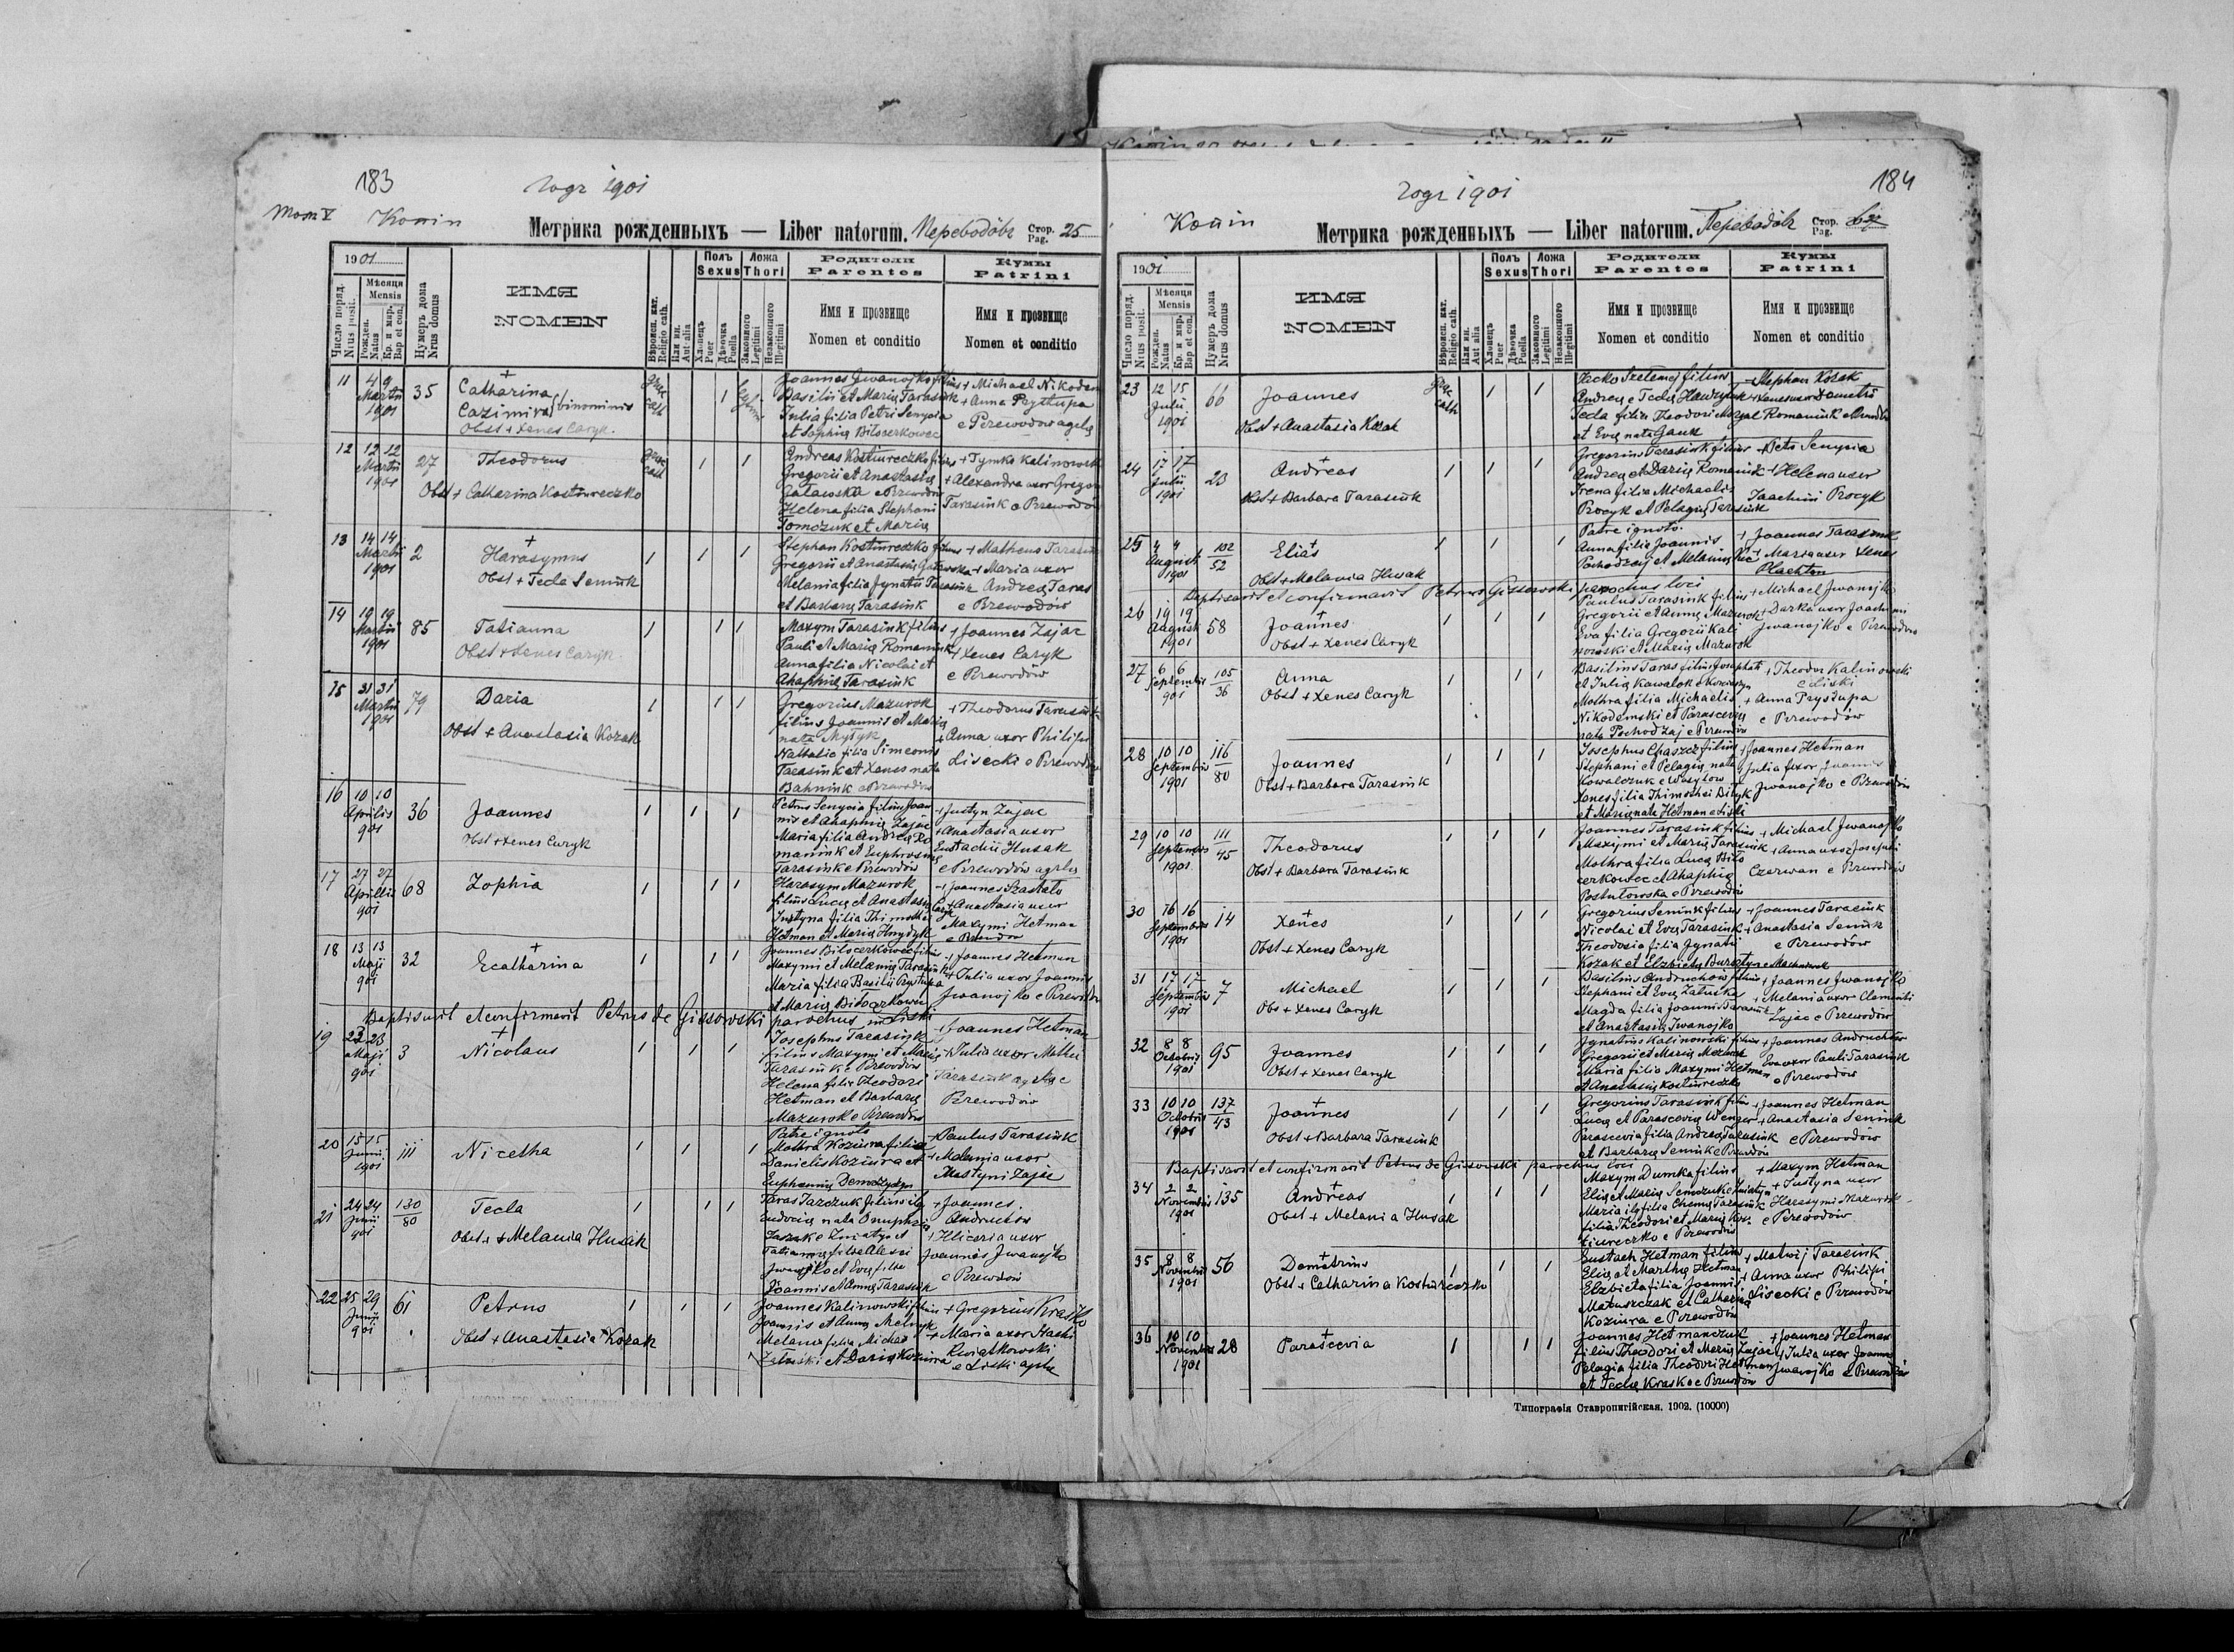 183
годъ 1901
Том V Копія
Метрика рожденныхъ — Liber natorum. Переводôвъ Стор. Pag. 25
1901
Число поряд. Nrus posit.
Мѣсяця Mensis
Рожден. Natus
Кр. и мѵр. Bap et con.
Нумеръ дома Nrus domus
ИМЯ
NOMEN
Вѣроисп. кат. Religio cath.
Или ин. Aut alia
Полъ Sexus
Хлопецъ Puer
Дѣвочка Puella
Ложа Thori
Законного Legitimi
Незаконного Illegitimi
Родители Parentes
Имя и прозвище
Nomen et conditio
Кумы Patrini
Имя и прозвище
Nomen et conditio
11 4 9 Martii 1901 35 + Catharina Cazimira binominis
Obst + Xenes Caryk.
Joannes Jwanojko filius
Basilii et Marię Tarasiuk
Julia filia Petri Senycia
et Sophię Bilocerkowec
+ Michael Nikodem
+ Anna Prystupa
e Perewodow agrlę
12 12 12 Martii 1901 27 Theodorus
Obst + Catharina Kostiureczko
Andreas Kostiureczko filius
Gregorii et Anastasię
Gatawska e Przewodów
Helena filia Stephani
Tomczuk et Marię
+ Tymko Kalinowsk
+ Alexandra uxor Gregor
Tarasiuk e Przewodó
13 14 14 Martii 1901 2 + Harasymus
Obst + Tecla Seniuk
Stephan Kostiureczko filius
Gregorii et Anastasię Gatawska
Melania filia Jgnatii Tarasiuk
et Barbarę Tarasiuk
+ Matheus Tarasiu
+ Maria uxor
Andreę Taras
e Przewodów
14 19 19 Martii 1901 85 Tatianna
Obst + Xenes Caryk.
Maxym Tarasiuk filius
Pauli et Marię Romaniuk
Anna filia Nicolai et
Ahaphię Tarasiuk
+ Joannes Zajac
+ Xenes Caryk
e Przewodów
15 31 31 Martii 1901 79 Daria
Obst + Anastasia Kozak
Gregorius Mazurok
filius Joannis et Marię
nata Mytyk
Nathalia filia Simeonis
Tarasiuk et Xenes nata
Bahniuk e Perewodów
+ Theodorus Tarasiuk
+ Anna uxor Philipi
Lisecki e Przewodów
16 10 10 Aprilis 901 36 Joannes
Obst + Xenes Caryk
Petrus Senycia filius Joan
nis et Ahaphię Zajac
Maria filia Andreę Ro
maniuk et Euphrosinę
Tarasiuk e Przewodów
+ Justyn Zajac
+ Anastasia uxor
Eustachii Husak
e Przewodów agrlę
17 27 27 Aprilis 901 68 Zophia
Harasym Mazurok
filius Lucę et Anastasię Caryk
Justyna filia Thimothei
Hetman et Marię Hnydyk
+ Joannes Szastało
+ Anastasia uxor
Maxymi Hetman
e Przewodów
18 13 13 Maji 901 32 + Ecatharina
Joannes Bilocerkowec filius
Maxymi et Melanię Tarasiuk
Maria filia Basilii Prystupa
et Marię Bilocerkowec
+ Joannes Hetman
+ Julia uxor Joannis
Jwanojko e Przewodów
Baptisavit et confirmavit Petrus de Gissowski parochus in Liski
19 23 23 Maji 901 3 + Nicolaus
Josephus Tarasiuk
filius Maxymi et Marię
Tarasiuk e Przewodów
Helena filia Theodori
Hetman et Barbarę
Mazurok e Przewodów
+ Joannes Hetman
+ Julia uxor Mathei
Tarasiuk agrlae e
Przewodów
20 15 15 Junii 1901 111 Nicetha
Patre ignoto
Mothra Koziura filia
Danielis Koziura et
Euphemię Demczydyn
+ Paulus Tarasiuk
+ Melania uxor
Justyni Zajac
21 24 24 Junii 901 130/80 Tecla
Obst + Melania Husak
Taras Tarczuk filius ilg
Eudocię nata Onuphrię
Łaszuk e Zniatyn et
Tatianna filia Alexii
Jwanojko et Evę filia
Joannis et Annę Tarasiuk
+ Joannes
Andruchów
+ Hliceria uxor
Joannis Jwanojko
e Przewodów
22 25 29 Junii 901 61 Petrus
Obst + Anastasia Kozak
Joannes Kalinowski filius
Joannis et Annę Melnyk
Melania filia Michael
Załuski et Darię Koziura
+ Gregorius Krasko
+ Maria uxor Stachi
Kwiatkowski
e Liski agrlę
184
годъ 1901
Копія
Метрика рожденныхъ — Liber natorum. Переводôвъ Стор. Pag.
1901
Число поряд. Nrus posit.
Мѣсяця Mensis
Рожден. Natus
Кр. и мѵр. Bap et con.
Нумеръ дома Nrus domus
ИМЯ
NOMEN
Вѣроисп. кат. Religio cath.
Или ин. Aut alia
Полъ Sexus
Хлопецъ Puer
Дѣвочка Puella
Ложа Thori
Законного Legitimi
Незаконного Illegitimi
Родители Parentes
Имя и прозвище
Nomen et conditio
Кумы Patrini
Имя и прозвище
Nomen et conditio
23 12 15 Julii 1901 66 Joannes
Obst + Anastasia Kozak
Hecko Szelemej filius
Andreę e Teclę Hawryluk
Tecla filia Theodori Mozgal
et Evę nata Gauk
+ Stephan Kozak
+ Xenes uxor Dometrii
Romaniuk
24 17 17 Julii 1901 23 + Andreas
Obst + Barbara Tarasiuk
Gregorius Tarasiuk filius
Andreę et Darię Romaniuk
Irena filia Michaelis
Procyk et Pelagię Tarasiuk
+ Petr Senycia
+ Helena uxor
Joachimi Procyk
25 4 4 August 1901 102/52 + Elias
Obst + Melania Husak
Patre ignoto.
Anna filia Joannis
Pochodzaj et Melanię Kuc
+ Joannes Tarasiuk
+ Maria uxor Xenes
Plachtyn
Baptisavit et confirmavit Petrus Gissowski parochus loci
26 19 19 August 1901 58 + Joannes
Obst + Xenes Caryk
Paulus Tarasiuk filius
Gregorii et Annę Mazurok
Eva filia Gregorii Kali
nowski et Marię Mazurok
+ Michael Jwanojko
+ Darka uxor Joachimi
Jwanojko e Przewodów
27 6 6 Septembris 901 105/36 Anna
Obst + Xenes Caryk
Basilius Taras filius Josaphati
et Julię Kawalok e
Mothra filia Michaelis
Nikodemski et Parascevię
nata Pochodzaj e Przewodów
+ Theodor Kalinowski
e Liski
+ Anna Prystupa
e Przewodów
28 10 10 Septembris 1901 116/80 Joannes
Obst + Barbara Tarasiuk
Josephus Chaszcz filius
Stephani et Pelagię nata
Kowalczuk e Wasylów
Xenes filia Thimothei Bilyk
et Marię nata Hetman e Liski
+ Joannes Hetman
+ Julia uxor Joannis
Jwanojko e Przewodów
29 10 10 Septembris 1901 111/45 Theodorus
Obst + Barbara Tarasiuk
Joannes Tarasiuk filius
Maxymi et Marię Tarasiuk
Mothra filia Lucę Bilo
cerkowec et Ahaphię
Postułowska e Przewodów
+ Michael Jwanojko
+ Anna uxor Josephi
Czerwan e Przewodów
30 16 16 Septembris 1901 14 + Xenes
Obst + Xenes Caryk
Gregorius Seniuk filius
Nicolai et Evę Tarasiuk
Theodosia filia Jgnatii
Kozak et Elzbietę Bursztyn e Machnówek
+ Joannes Tarasiuk
+ Anastasia Seniuk
e Przewodów
31 17 17 Septembris 1901 7 Michael
Obs + Xenes Caryk
Basilius Andruchów filius
Stephani et Evę Załuska
Magda filia Joannis Tarasiuk
et Anastasię Jwanojko
+ Joannes Jwanojko
+ Melania uxor Clementi
Zajac e Przewodów
32 8 8 Octobris 1901 95 Joannes
Obst + Xenes Caryk
Jgnatius Kalinowski filius
Gregorii et Marię Mazurok
Maria filia Maxymi Hetman
et Anastasię Kostiureczko
+ Joannes Andruchów
Eva uxor Pauli Tarasiuk
e Przewodów
33 10 10 Octobris 1901 137/43 + Joannes
Obst + Barbara Tarasiuk
Gregorius Tarasiuk filius
Lucę et Parascevię Wenger
Parascevia filia Andreę Tarasiuk
et Barbarę Seniuk e Przewodów
+ Joannes Hetman
+ Anastasia Seniuk
e Przewodów
Baptisavit et confirmavit Petrus de Gissowski parochus loci
34 2 2 Novembris 1901 135 + Andreas
Obst + Melania Husak
Maxym Dumka filius
Elię et Marię Semczuk e Zniatyn
Maria ilg filia Chemę Tarasiuk
filia Theodori et Marię Kos
tiureczko e Przewodów
+ Maxym Hetman
+ Justyna uxor
Harasymi Mazurok
e Przewodów
35 8 8 Novembris 1901 56 + Demetrius
Obst + Catharina Kostiureczko
Eustach Hetman filius
Elię et Marthę Hetman
Elzbieta filia Joannis
Matuszczak et Catharinę
Koziura e Przewodów
+ Matwij Tarasiuk
+ Anna uxor Philipi
Lisecki e Przewodów
36 10 10 Novembris 1901 28 + Parascevia
Joannes Hetmanczuk
filius Theodori et Marię Zajac
Pelagia filia Theodori Hetman
et Teclę Krasko e Przewodów
+ Joannes Hetman
+ Julia uxor Joannis
Jwanojko e Przewodów
Типографія Ставропигійская. 1902. (10000)